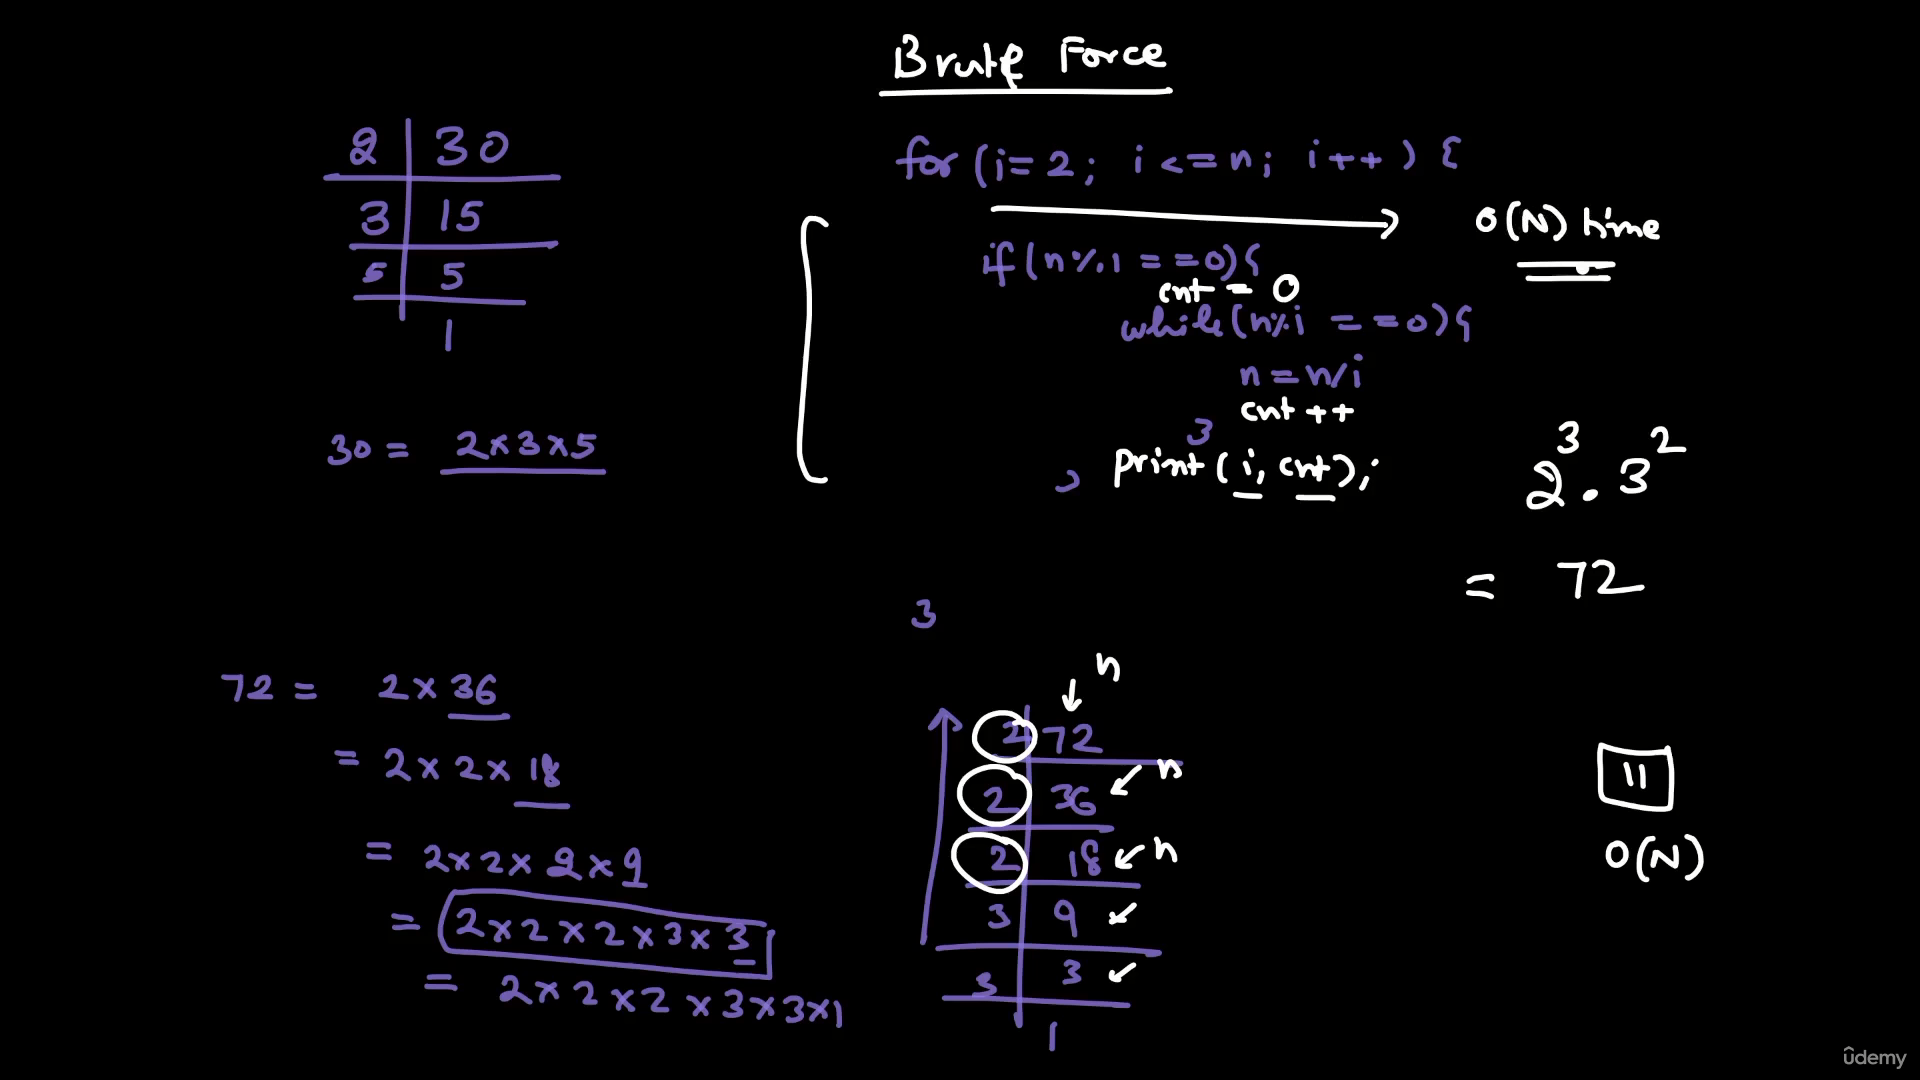 Brute Force
2 | 30
3 | 15
5 | 5
1
30 = 2×3×5
for (i=2; i<=n; i++) {
O(N) time
if (n%i ==0){
cnt = 0
while(n%i ==0){
n = n/i
cnt ++
}
} print(i, cnt);
}
2³ . 3²
= 72
72 = 2×36
= 2×2×18
= 2×2×2×9
= 2×2×2×3×3
= 2×2×2×3×3×1
n
2 | 72
2 | 36 n
2 | 18 n
3 | 9
3 | 3
1
11
O(N)
ûdemy